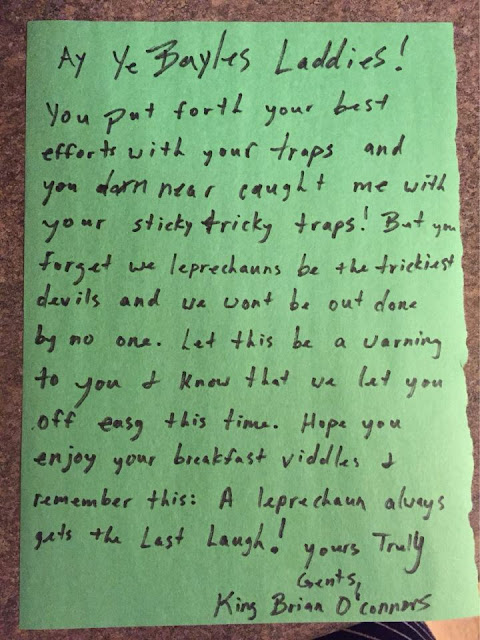 Ay Ye Bayles Laddies!
You put forth your best
efforts with your traps and
you darn near caught me with
your sticky tricky traps! But you
forget we leprechauns be the trickiest
devils and we wont be out done
by no one. Let this be a warning
to you & know that we let you
off easy this time. Hope you
enjoy your breakfast viddles &
remember this: A leprechaun always
gets the Last Laugh! yours Trully
Gents,
King Brian O'connors